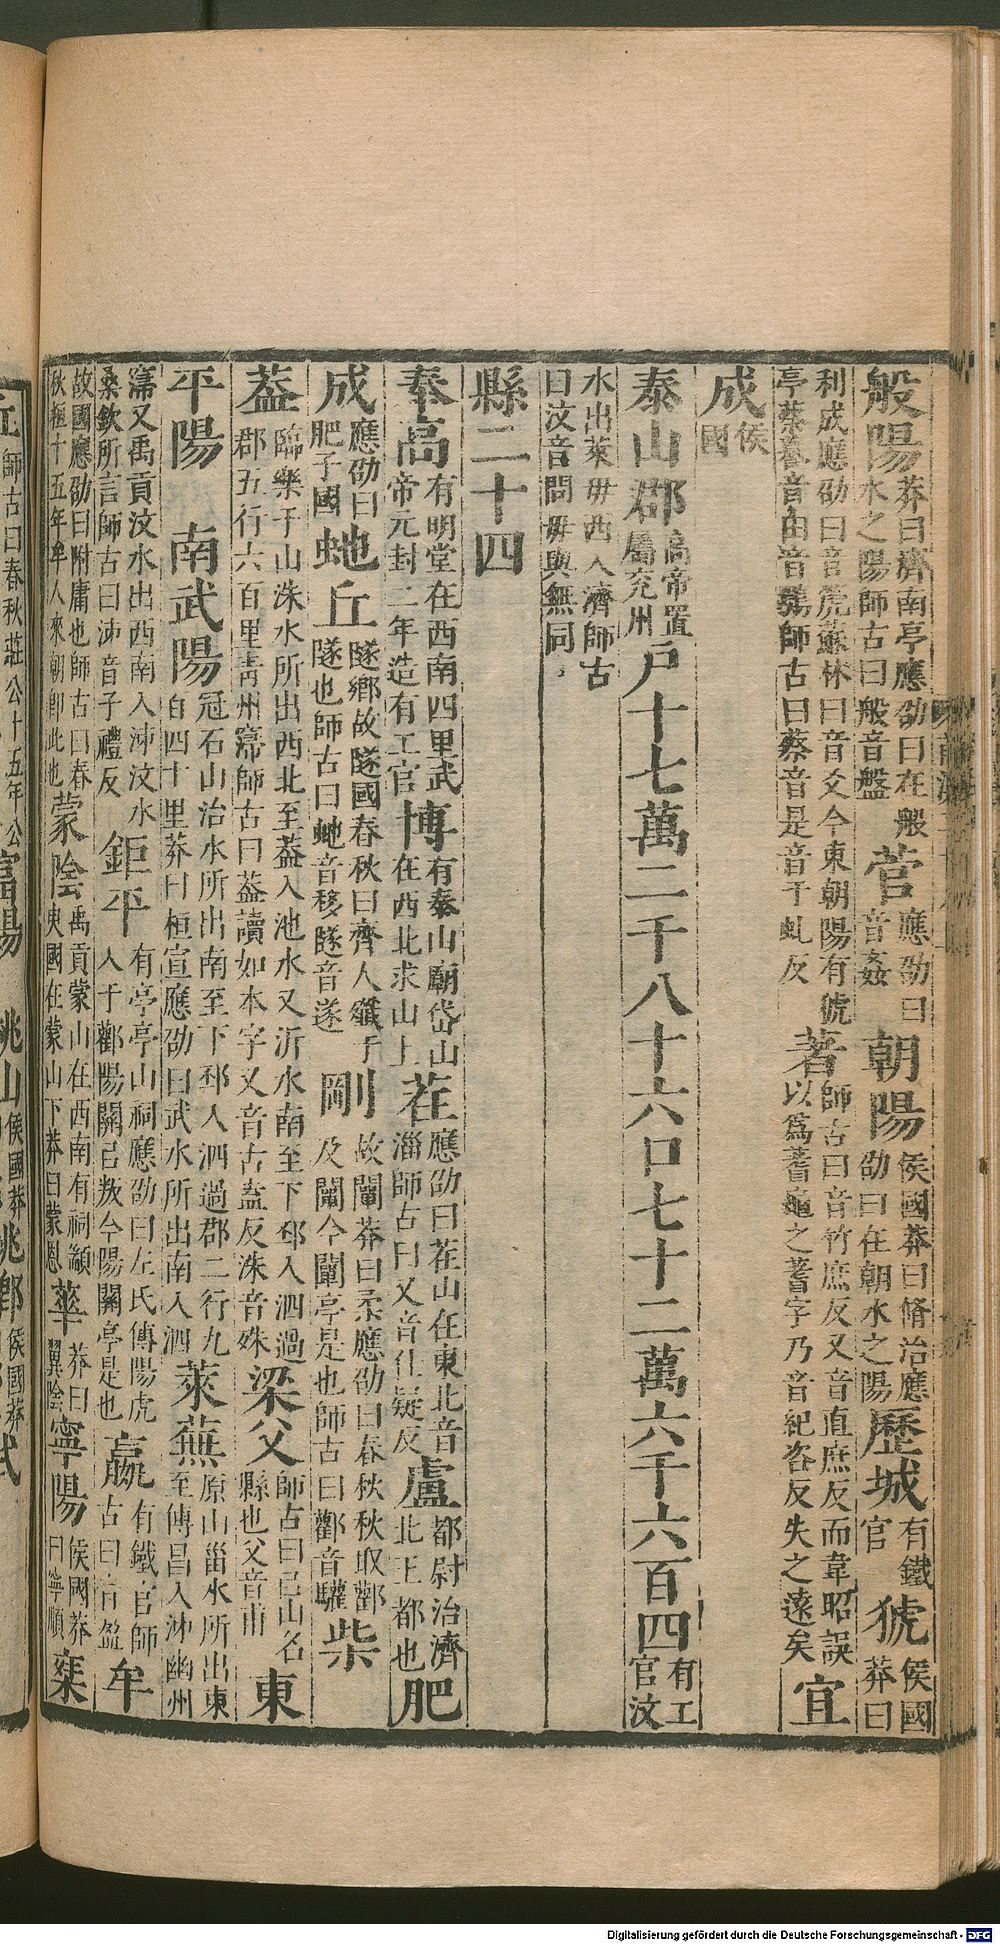 般陽莽曰濟南亭應劭曰在般水之陽師古曰般音盤菅應劭曰音姦朝陽侯國莽曰脩治應劭曰在朝水之陽歷城有鐵官猇侯國莽曰
利成應劭曰音箎蘇林曰音爻今東朝陽有猇亭蔡謩音由音鴞師古曰蔡音是音于虬反著師古曰音竹庶反又音直庶反而韋昭誤以爲蓍龜之蓍字乃音紀咨反失之遠矣宜
成侯國
泰山郡高帝置屬兖州戶十七萬二千八十六口七十二萬六千六百四有工官汶
水出萊毋西入濟師古曰汶音問毋與無同
縣二十四
奉高有明堂在西南四里武帝元封二年造有工官博有泰山廟岱山在西北求山上茬應劭曰茬山在東北音淄師古曰又音仕疑反盧都尉治濟北王都也肥
成應劭曰肥子國虵丘隧鄉故隧國春秋曰齊人殲于隧也師古曰虵音移隧音遂剛故闡莽曰柔應劭曰春秋秋取酄及闡今闡亭是也師古曰酄音驩柴
葢臨樂于山洙水所出西北至葢入池水又沂水南至下邳入泗過郡五行六百里靑州寖師古曰葢讀如本字又音古盍反洙音殊梁父師古曰以山名縣也父音甫東
平陽南武陽冠石山治水所出南至下邳入泗過郡二行九百四十里莽曰桓宣應劭曰武水所出南入泗萊蕪原山甾水所出東至傅昌入泲幽州
寖又禹貢汶水出西南入泲汶水桑欽所言師古曰泲音子禮反鉅平有亭亭山祠應劭曰左氏傳陽虎入于酄陽關已叛今陽關亭是也嬴有鐵官師古曰音盈牟
故國應劭曰附庸也師古曰春秋桓十五年牟人來朝卽此也蒙陰禹貢蒙山在西南有祠顓臾國在蒙山下莽曰蒙恩華莽曰翼陰寧陽侯國莽曰寧順椉
丘師古曰春秋莊公十五年公富陽桃山侯國莽桃鄉侯國莽式
Digitalisierung gefördert durch die Deutsche Forschungsgemeinschaft - DFG